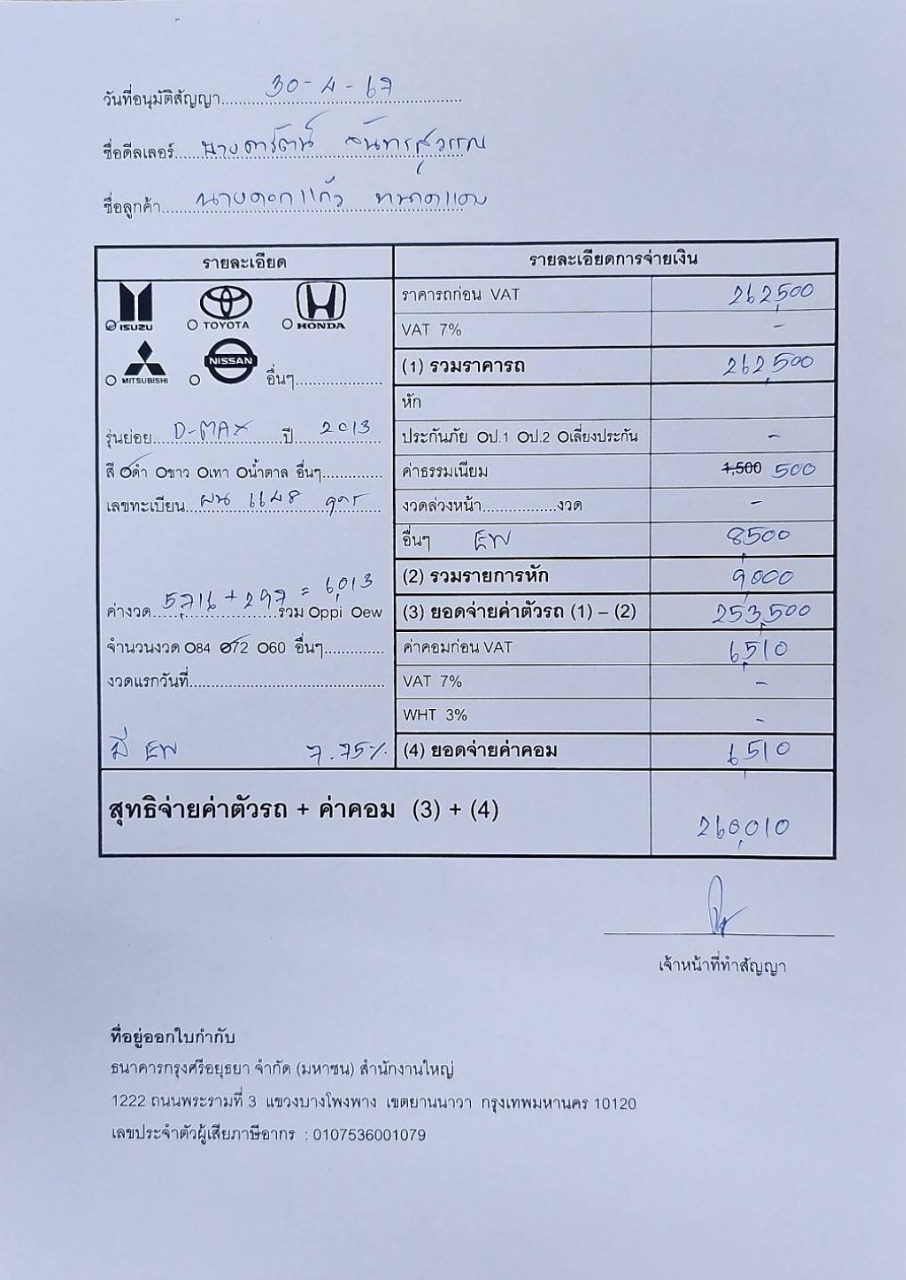 วันที่อนุมัติสัญญา 30-4-67
ชื่อดีลเลอร์ นางดารัตน์ จันทรสุวรรณ
ชื่อลูกค้า นางดอกแก้ว
รายละเอียด
ISUZU TOYOTA HONDA
MITSUBISHI NISSAN อื่นๆ
รุ่นย่อย D-MAX ปี 2013
สี Oดำ Oขาว Oเทา Oน้ำตาล อื่นๆ
เลขทะเบียน ผน 1148
5,716 + 297 = 6,013
ค่างวด รวม Oppi Oew
จำนวนงวด O84 O72 O60 อื่นๆ
งวดแรกวันที่
มี EW 7.75%
รายละเอียดการจ่ายเงิน
ราคารถก่อน VAT 262,500
VAT 7% -
(1) รวมราคารถ 262,500
หัก
ประกันภัย Oป.1 Oป.2 Oเลี่ยงประกัน -
ค่าธรรมเนียม 1,500 500
งวดล่วงหน้า งวด -
อื่นๆ EW 8,500
(2) รวมรายการหัก 9,000
(3) ยอดจ่ายค่าตัวรถ (1) – (2) 253,500
ค่าคอมก่อน VAT 6,510
VAT 7% -
WHT 3% -
(4) ยอดจ่ายค่าคอม 6,510
สุทธิจ่ายค่าตัวรถ + ค่าคอม (3) + (4) 260,010
เจ้าหน้าที่ทำสัญญา
ที่อยู่ออกใบกำกับ
ธนาคารกรุงศรีอยุธยา จำกัด (มหาชน) สำนักงานใหญ่
1222 ถนนพระรามที่ 3 แขวงบางโพงพาง เขตยานนาวา กรุงเทพมหานคร 10120
เลขประจำตัวผู้เสียภาษีอากร : 0107536001079